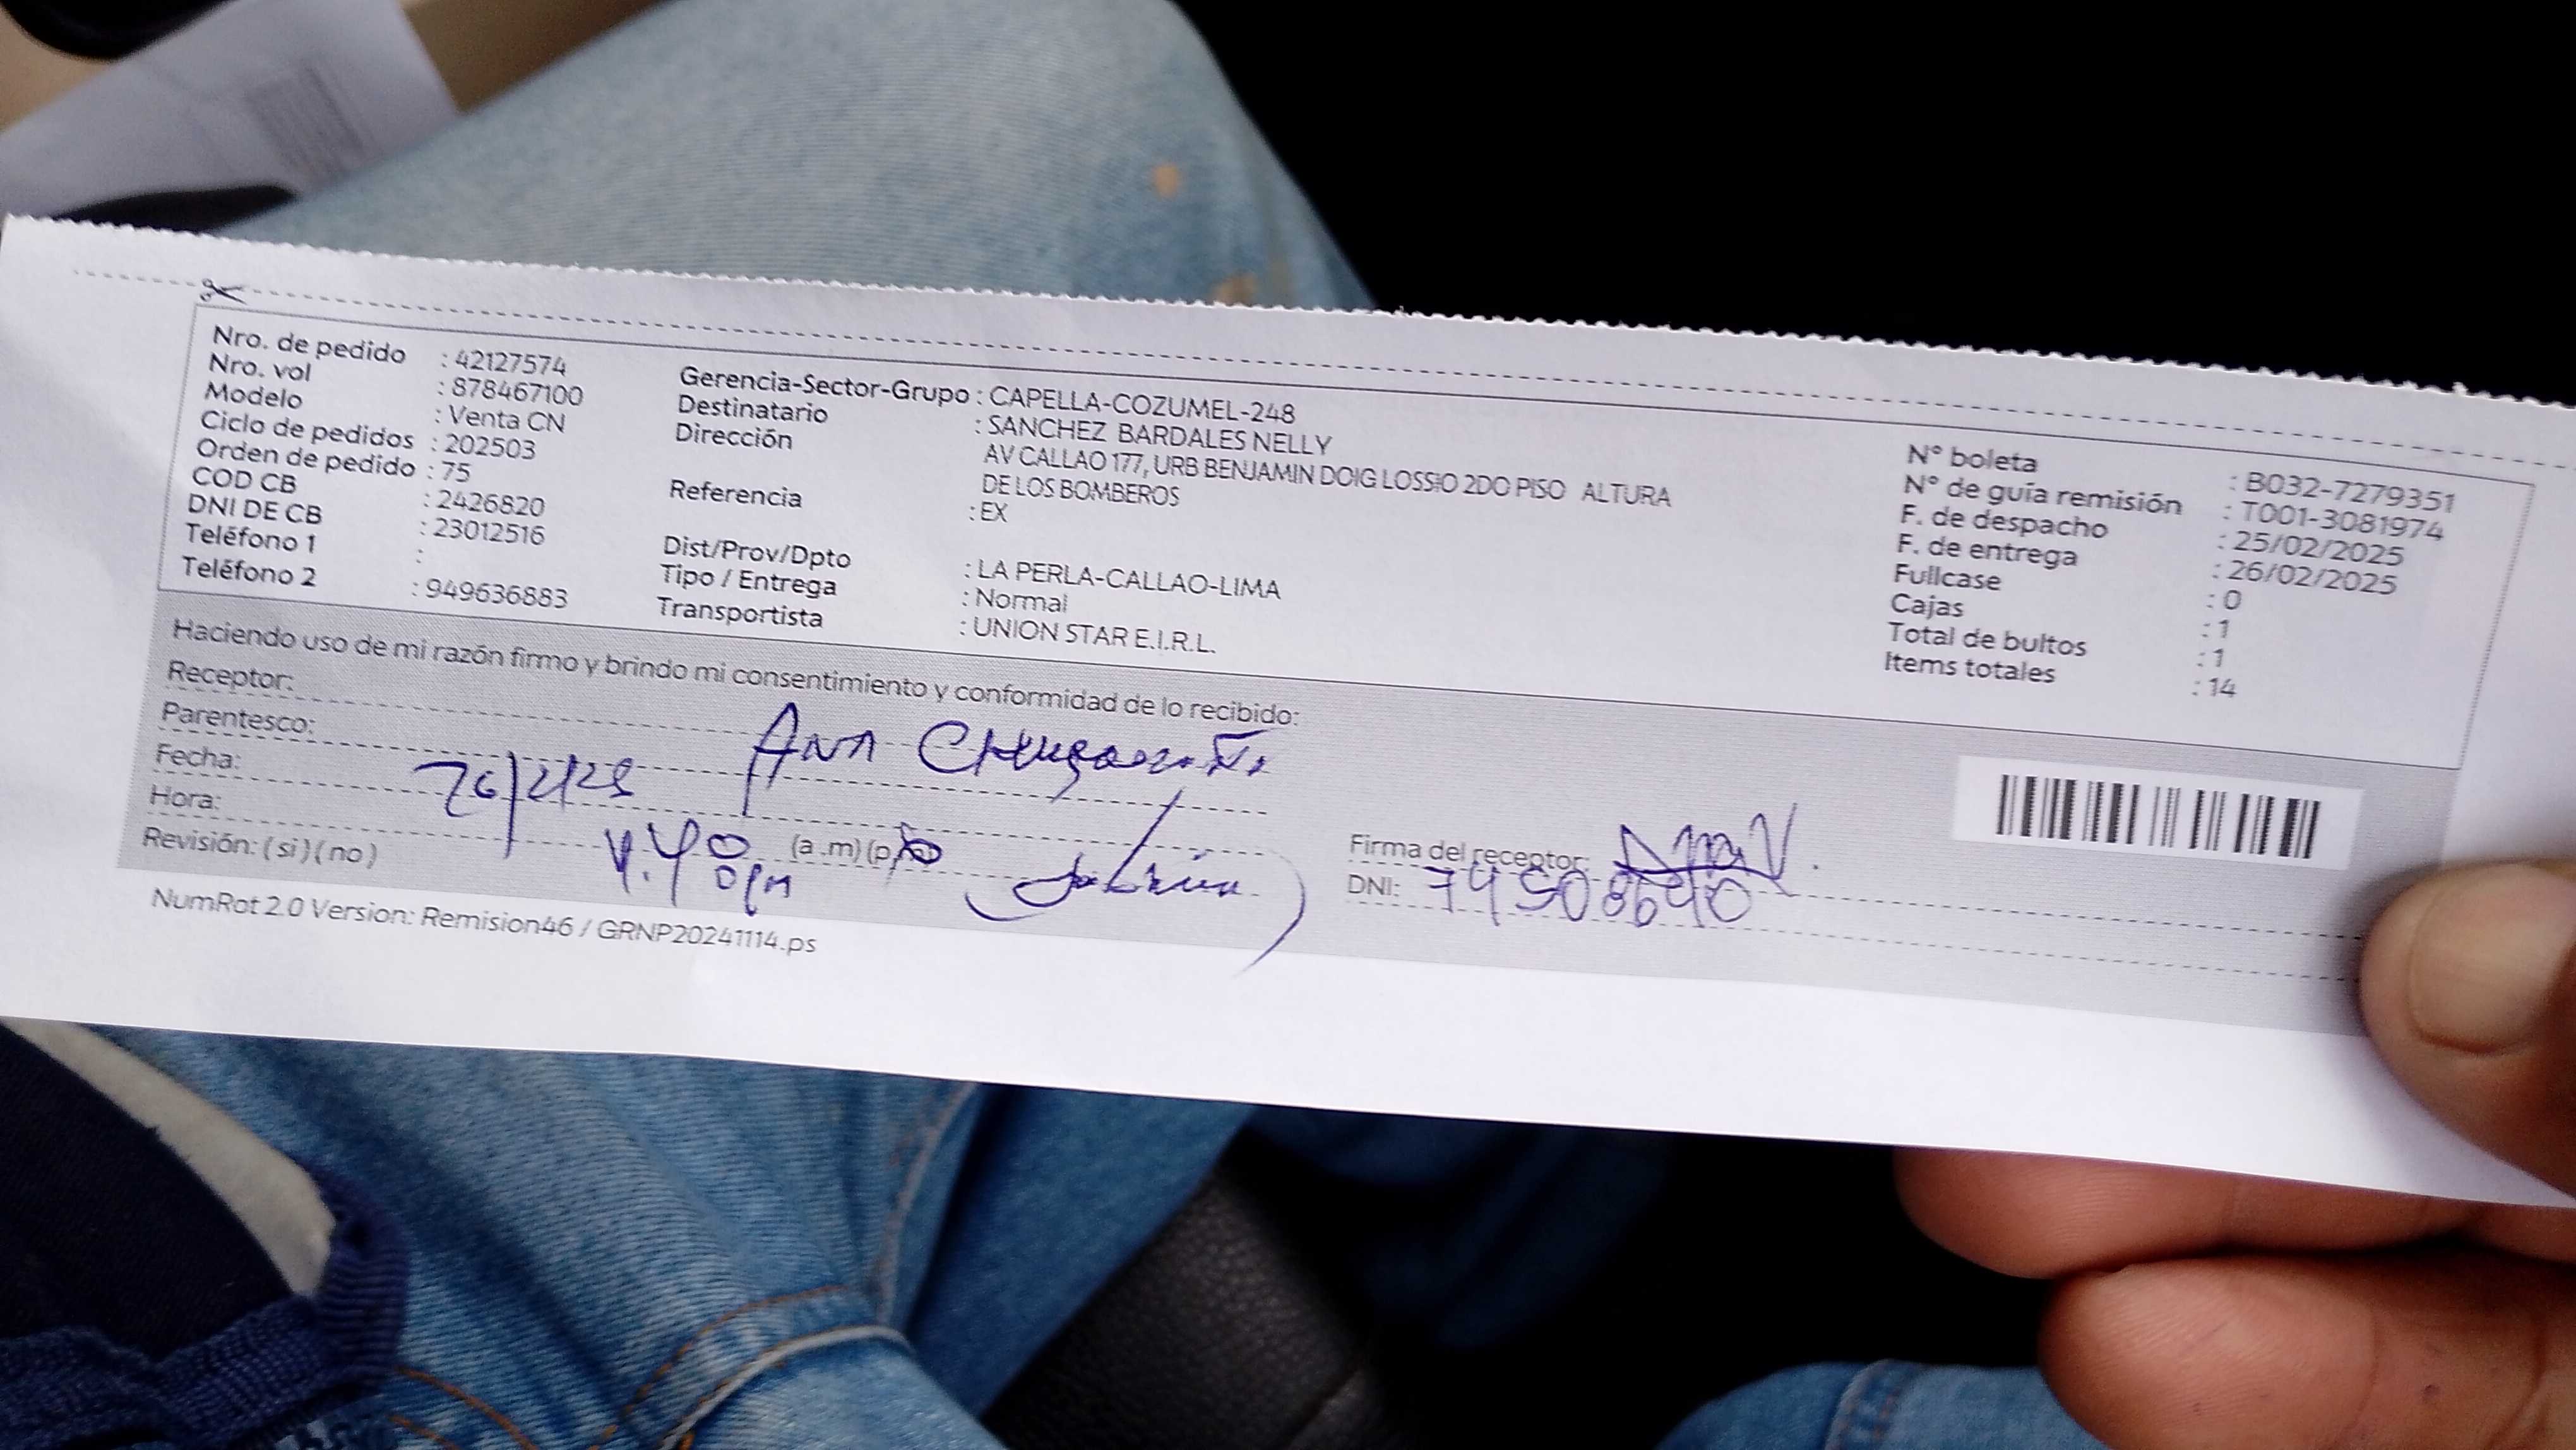 Nro. de pedido : 42127574
Nro. vol : 878467100
Modelo : Venta CN
Ciclo de pedidos : 202503
Orden de pedido : 75
COD CB : 2426820
DNI DE CB : 23012516
Teléfono 1 :
Teléfono 2 : 949636883
Gerencia-Sector-Grupo : CAPELLA-COZUMEL-248
Destinatario : SANCHEZ BARDALES NELLY
Dirección AV CALLAO 177, URB BENJAMIN DOIG LOSSIO 2DO PISO ALTURA
DE LOS BOMBEROS
Referencia : EX
Dist/Prov/Dpto : LA PERLA-CALLAO-LIMA
Tipo / Entrega : Normal
Transportista : UNION STAR E.I.R.L.
N° boleta : B032-7279351
N° de guía remisión : T001-3081974
F. de despacho : 25/02/2025
F. de entrega : 26/02/2025
Fullcase : 0
Cajas : 1
Total de bultos : 1
Items totales : 14
Haciendo uso de mi razón firmo y brindo mi consentimiento y conformidad de lo recibido:
Receptor: Ana
Parentesco:
Fecha: 26/2/25
Hora: 4.40 pm (a.m)(p
Revisión: ( si ) ( no )
Firma del receptor:
DNI:
NumRot 2.0 Version: Remision46 / GRNP20241114.ps